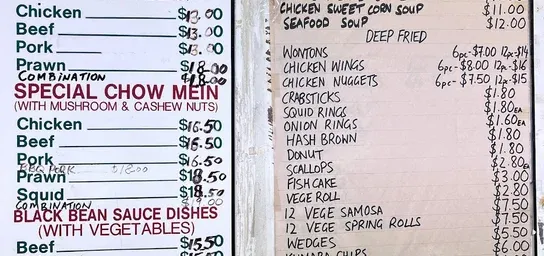 Chicken $13.00
Beef $13.00
Pork $13.00
Prawn $18.00
COMBINATION $18.00
SPECIAL CHOW MEIN
(WITH MUSHROOM & CASHEW NUTS)
Chicken $16.50
Beef $16.50
Pork $16.50
BBQ PORK $18.00
Prawn $18.50
Squid $18.50
COMBINATION $19.00
BLACK BEAN SAUCE DISHES
(WITH VEGETABLES)
Beef $15.50
CHICKEN SWEET CORN SOUP $11.00
SEAFOOD SOUP $12.00
DEEP FRIED
WONTONS 6pc-$7.00 12pc-$14
CHICKEN WINGS 6pc-$8.00 12pc-$16
CHICKEN NUGGETS 6pc-$7.50 12pc-$15
CRABSTICKS $1.80
SQUID RINGS $1.80EA
ONION RINGS $1.60EA
HASH BROWN $1.80
DONUT $1.80
SCALLOPS $2.80EA
FISHCAKE $3.00
VEGE ROLL $2.80
12 VEGE SAMOSA $7.50
12 VEGE SPRING ROLLS $7.50
WEDGES $5.50
KUMARA CHIPS $6.00